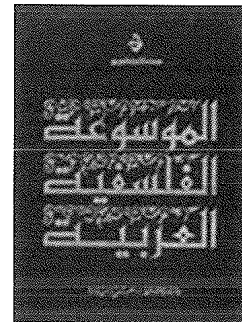 الموسوعة
الفلسفية
العربية